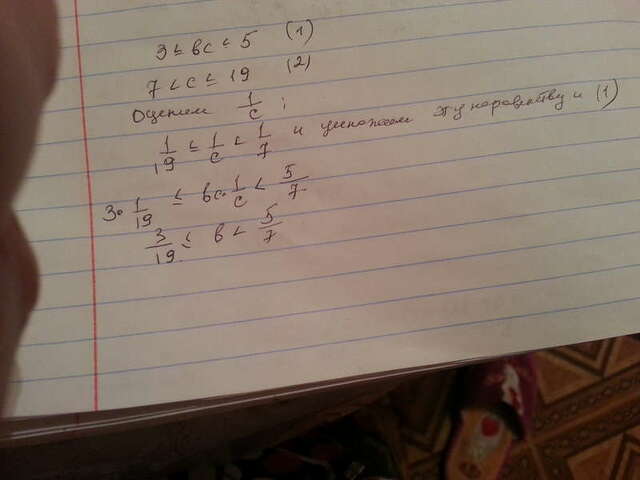 3 ≤ вс < 5 (1)
7 < с ≤ 19 (2)
Оценим 1/с ;
1/19 ≤ 1/с < 1/7 и умножаем эту неравенству и (1)
3· 1/19 ≤ вс· 1/с < 5/7
3/19 ≤ в < 5/7